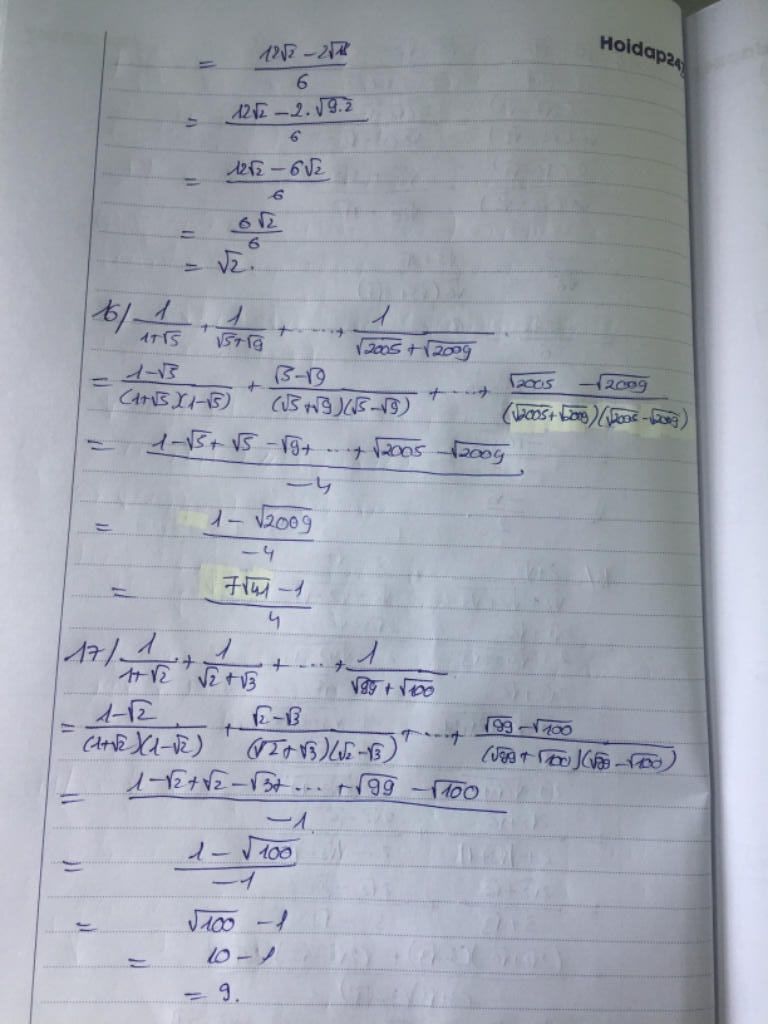 Hoidap247
= (12√2 - 2√18)/6
= (12√2 - 2.√9.2)/6
= (12√2 - 6√2)/6
= 6√2/6
= √2.
16/ 1/(1+√5) + 1/(√5+√9) + ..... + 1/(√2005 + √2009)
= (1-√5)/((1+√5)(1-√5)) + (√5-√9)/((√5+√9)(√5-√9)) + ... + (√2005 - √2009)/((√2005+√2009)(√2005-√2009))
= (1-√5+√5-√9+ ... + √2005 - √2009)/-4
= (1-√2009)/-4
= (7√41 - 1)/4
17/ 1/(1+√2) + 1/(√2+√3) + ... + 1/(√99+√100)
= (1-√2)/((1+√2)(1-√2)) + (√2-√3)/((√2+√3)(√2-√3)) + ... + (√99-√100)/((√99+√100)(√99-√100))
= (1-√2+√2-√3+ ... + √99 - √100)/-1
= (1-√100)/-1
= √100 - 1
= 10 - 1
= 9.